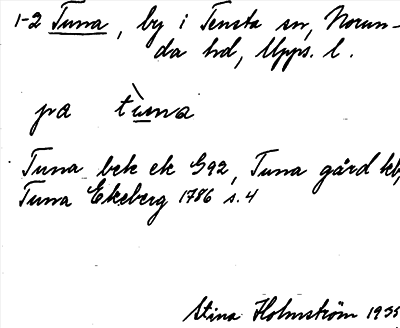 1-2 Tuna, by i Tensta sn, Norun-
da hd, Upps. l.
pa tùna
Tuna bek ek G92, Tuna gård kb,
Tuna Ekeberg 1786 s. 4
Stina Holmström 1935